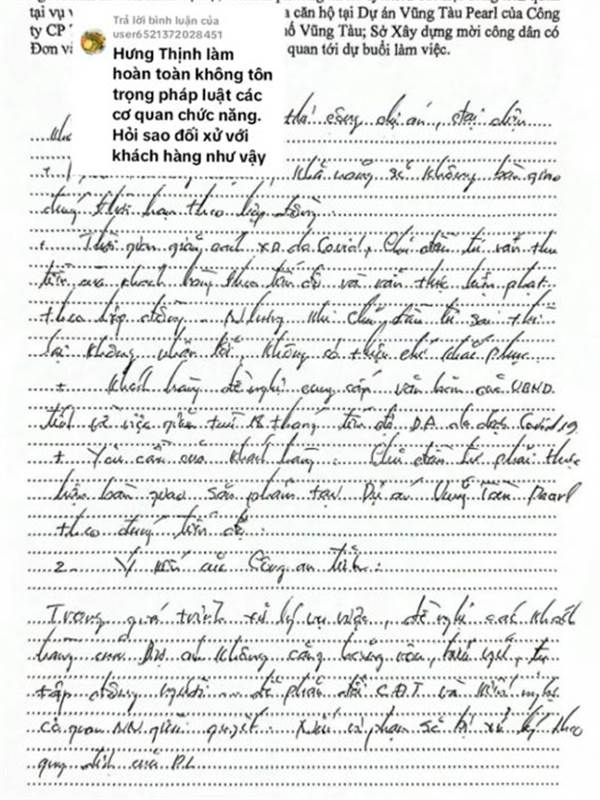 tại vụ v
a căn hộ tại Dự án Vũng Tàu Pearl của Công
ty CP
ố Vũng Tàu; Sở Xây dựng mời công dân có
Đơn và
quan tới dự buổi làm việc.
Trả lời bình luận của
user6521372028451
Hưng Thịnh làm
hoàn toàn không tôn
trọng pháp luật các
cơ quan chức năng.
Hỏi sao đối xử với
khách hàng như vậy
thi công dự án, đại diện
khả năng sẽ không bàn giao
đúng thời hạn theo hợp đồng.
+ Thời gian giãn cách XD do Covid, Chủ đầu tư vẫn thu
tiền của khách hàng theo tiến độ và vẫn thực hiện phạt
theo hợp đồng. Nhưng khi chủ đầu tư sai thì
lại không nhận lỗi, không có thiện chí khắc phục.
+ Khách hàng đề nghị cung cấp văn bản của UBND.
tỉnh về việc giãn 18 tháng tiến độ D.A do dịch Covid 19
+ Yêu cầu của khách hàng: Chủ đầu tư phải thực
hiện bàn giao sản phẩm tại Dự án Vũng Tàu Pearl
theo đúng tiến độ.
2- Ý kiến của Công an tỉnh:
Trong quá trình xử lý vụ việc, đề nghị các khách
hàng của Dự án không căng băng rôn, biểu ngữ, tụ
tập đông người để phản đối C.Đ.T và kiến nghị
cơ quan NN giải quyết. Nếu vi phạm sẽ bị xử lý theo
quy định của P.L